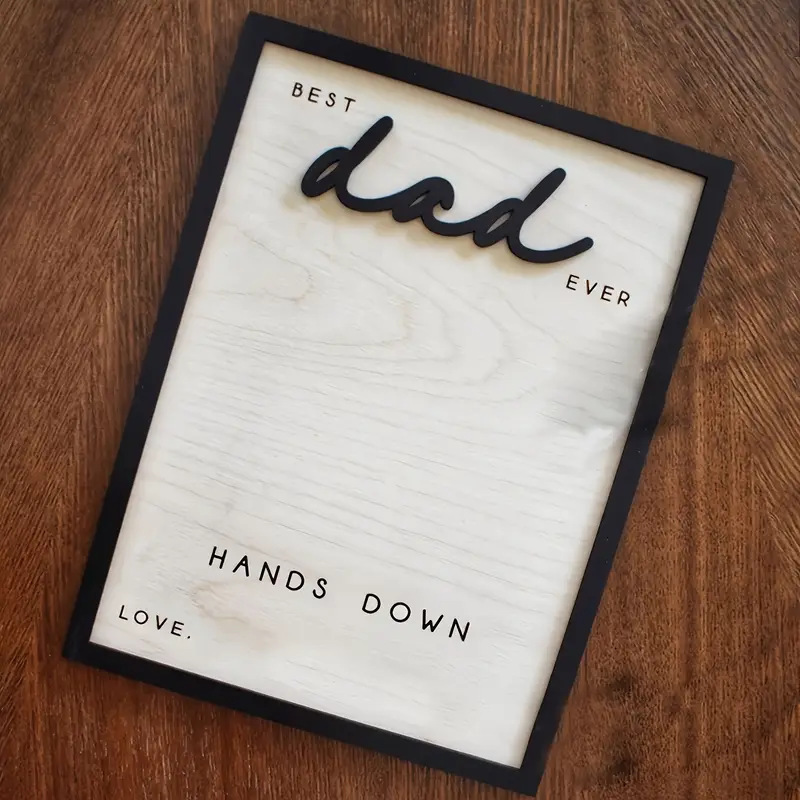 BEST
dad
EVER
HANDS DOWN
LOVE.